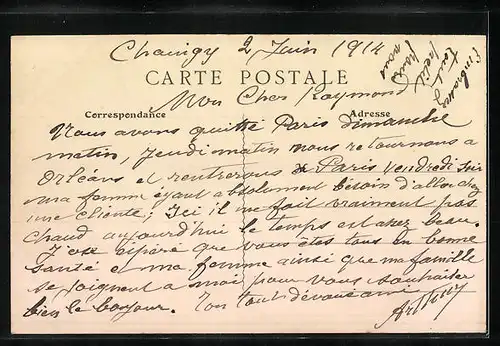 Chaingy 2 Juin 1914
CARTE POSTALE
Correspondance
Adresse
Mon Cher Raymond
Nous avons quitté Paris dimanche
matin, Jeudi matin nous retournons a
Orléans et rentrerons à Paris Vendredi soir
ma femme ayant absolument besoin d'aller chez
une cliente; Ici il ne fait vraiment pas
chaud aujourd'hui le temps est assez beau.
J'ose espérer que vous êtes tous en bonne
santé et ma femme ainsi que ma famille
se joignent a moi pour vous souhaiter
bien le bonjour. Ton tout dévoué ami
Arthur
J'embrasse
tout
petit